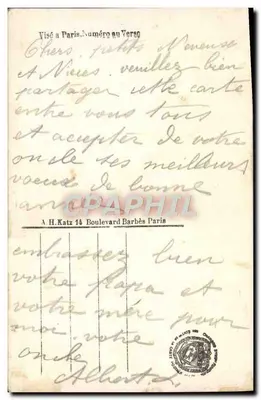 Visé a Paris.Numéro au Verso
Chers petits Neveux
et Nièces. veuillez bien
partager cette carte
entre vous tous
et accepter de votre
oncle ses meilleurs
voeux de bonne
année
A.H.Katz 14 Boulevard Barbès Paris
embrassez bien
votre Papa et
votre mère pour
moi. votre
oncle
Albert